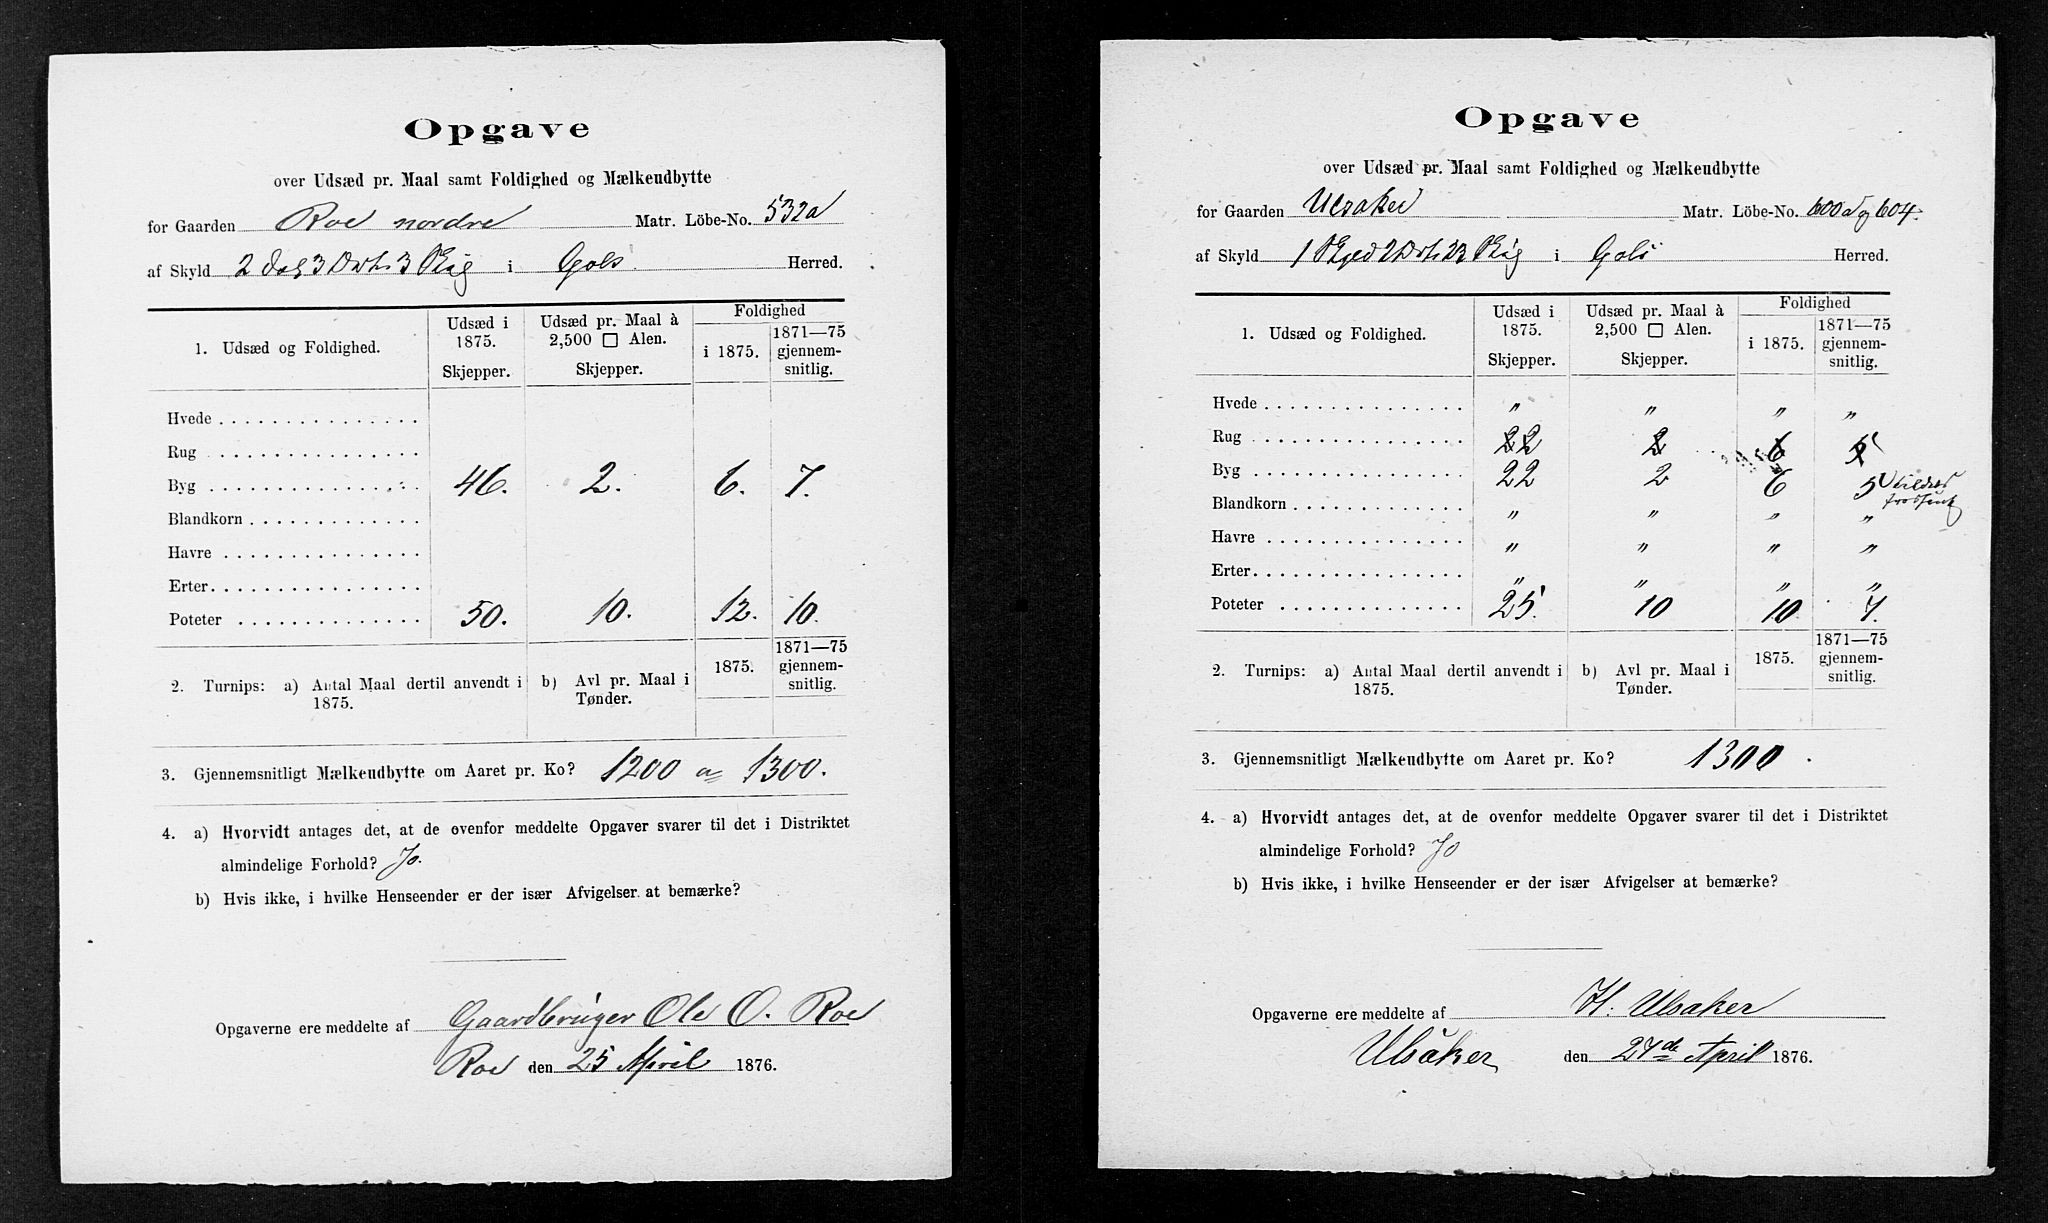 Opgave
over Udsæd pr. Maal samt Foldighed og Mælkeudbytte
for Gaarden Roe nordre Matr. Löbe-No. 532a
af Skyld 2 Dal 3 Ort 3 Skig i Gols Herred.
1. Udsæd og Foldighed.
Udsæd i 1875. Skjepper.
Udsæd pr. Maal à 2,500 □ Alen. Skjepper.
Foldighed
i 1875.
1871—75 gjennem-snitlig.
Hvede
Rug
Byg 46. 2. 6. 7.
Blandkorn
Havre
Erter
Poteter 50. 10. 12. 10.
2. Turnips: a) Antal Maal dertil anvendt i 1875.
b) Avl pr. Maal i Tønder.
1875.
1871—75 gjennem-snitlig.
3. Gjennemsnitligt Mælkeudbytte om Aaret pr. Ko? 1200 a 1300.
4. a) Hvorvidt antages det, at de ovenfor meddelte Opgaver svarer til det i Distriktet
almindelige Forhold? Jo.
b) Hvis ikke, i hvilke Henseender er der især Afvigelser at bemærke?
Opgaverne ere meddelte af Gaardbruger Ole O. Roe
Roe den 25 April 1876.
Opgave
over Udsæd pr. Maal samt Foldighed og Mælkeudbytte
for Gaarden Ulsaker Matr. Löbe-No. 600a og 604.
af Skyld 1 2 Ort 23 Skig i Gols Herred.
1. Udsæd og Foldighed.
Udsæd i 1875. Skjepper.
Udsæd pr. Maal à 2,500 □ Alen. Skjepper.
Foldighed
i 1875.
1871—75 gjennem-snitlig.
Hvede " " " "
Rug 22 2 6 5
Byg 22 2 6 5
Blandkorn " " " "
Havre " " " "
Erter " " " "
Poteter 25 10 10 7.
2. Turnips: a) Antal Maal dertil anvendt i 1875.
b) Avl pr. Maal i Tønder.
1875.
1871—75 gjennem-snitlig.
3. Gjennemsnitligt Mælkeudbytte om Aaret pr. Ko? 1300.
4. a) Hvorvidt antages det, at de ovenfor meddelte Opgaver svarer til det i Distriktet
almindelige Forhold? Jo
b) Hvis ikke, i hvilke Henseender er der især Afvigelser at bemærke?
Opgaverne ere meddelte af H. Ulsaker
Ulsåker den 27de April 1876.